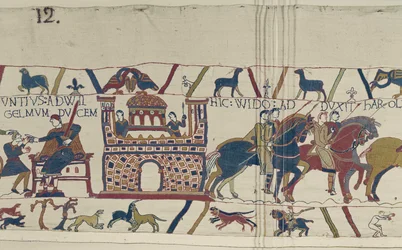 12.
UNTIUS: AD WIL
GELMUM DUCEM
HIC: WIDO: AD DUXIT hAROL